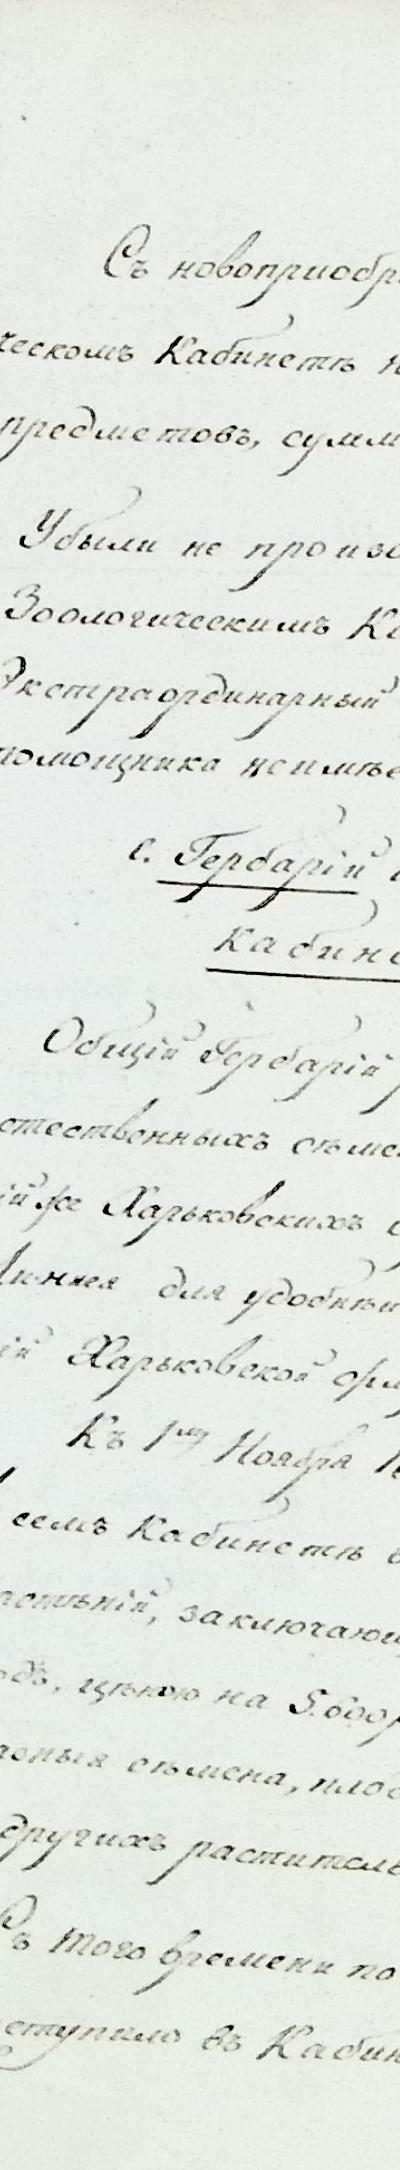 Съ новоприобр
ческомъ Кабинетѣ н
предметовъ, сумм
Убыли не произо
Зоологическимъ Ка
Экстраординарный
помощника неимѣе
с. Гербарій
Кабине
Общій Гербарій
стественныхъ сѣме
ій же Харьковскихъ
Линнея для удобнѣй
ій Харьковской фл
Къ 1му Ноября 1
семъ Кабинетѣ
астѣній, заключающ
одъ, цѣною на 5.600р
азныя сѣмена, плод
другихъ раститель
Съ того времени по
оступило въ Кабин